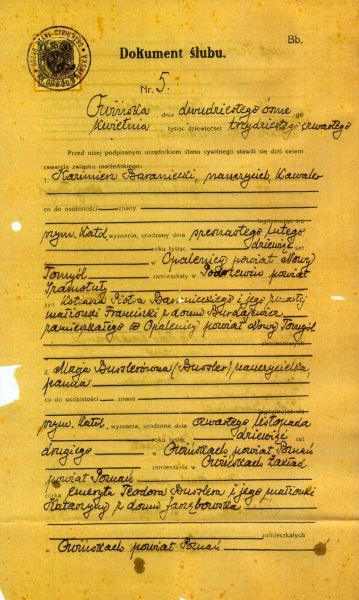 Bb.
Dokument ślubu.
Nr. 5.
dnia dwudziestego ósme go
kwietnia tysiąc dziewięćset trzydziestego czwartego
Przed niżej podpisanym urzędnikiem stanu cywilnego stawili się dziś celem
zawarcia związku małżeńskiego:
1. Kazimierz Baraniecki, nauczyciel, Kawaler
co do osobistości znany
legitymując się
rzym. Katol. wyznania, urodzony dnia lutego
roku tysiąc dziewięć set
w Opalenicy powiat Nowy
Tomyśl zamieszkały w powiat
Szamotuły
syn Piotra Baranieckiego i jego zmarłej
małżonki Franciszki z domu
zamieszkałego w Opalenicy powiat Nowy Tomyśl
zamieszkałych
2. Marja Busslerówna (Bussler) nauczycielka,
panna
co do osobistości znana
legitymując się
rzym. Katol. wyznania, urodzona dnia czwartego listopada
roku tysiąc dziewięć set
drugiego w Owińskach powiat Poznań
zamieszkała w Owińskach Zakład
powiat Poznań
córka emeryta Teodora Busslera i jego małżonki
Katarzyny z domu
zamieszkałych
w Owińskach powiat Poznań